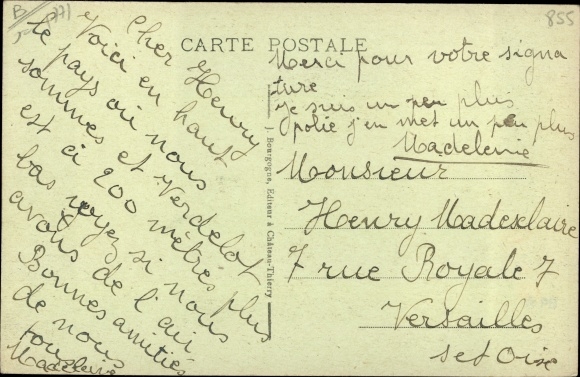 B
855
CARTE POSTALE
Cher Henry
Voici en haut
le pays où nous
sommes et Verdelot
est ci 200 mètres plus
bas voyez si nous
avons de l'air
Bonnes amitiés
de nous
tous
Madeleine
Merci pour votre signa
ture
je suis un peu plus
polie j'en met un peu plus
Madeleine
J. Bourgogne, Editeur à Château-Thierry
Monsieur
Henry
7 rue Royale 7
Versailles
S et Oise